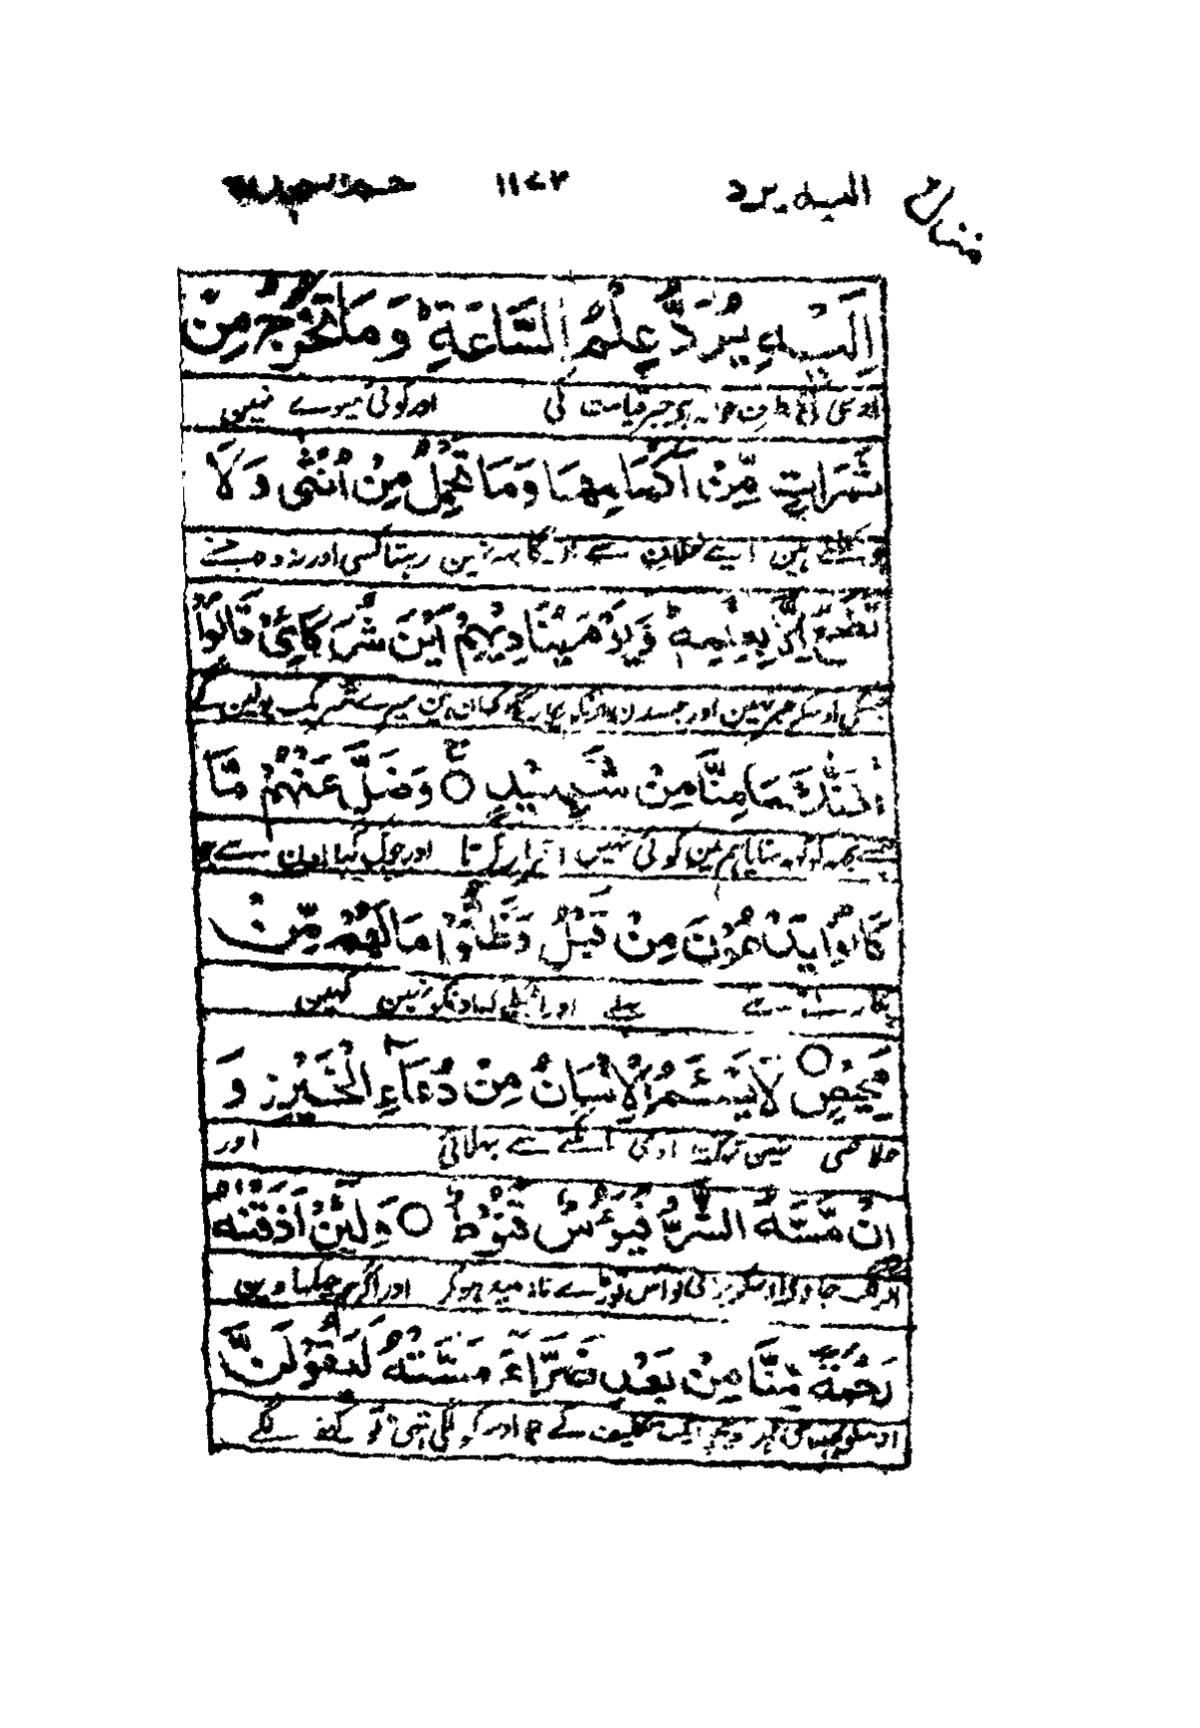 منزل ٦ اليه يرد ١١٧٤ حم السجدة
إِلَيْهِ يُرَدُّ عِلْمُ السَّاعَةِ ۚ وَمَا تَخْرُجُ مِنْ
اوسی کی طرف حوالہ ہے خبر قیامت کی اور کوئی میوے نہیں
ثَمَرَاتٍ مِّنْ أَكْمَامِهَا وَمَا تَحْمِلُ مِنْ أُنْثَىٰ وَلَا
ہین اپنے غلاف سے اور گابہہ نہین رہتا کسی اور نہ وہ جنے
تَضَعُ إِلَّا بِعِلْمِهِ ۚ وَيَوْمَ يُنَادِيهِمْ أَيْنَ شُرَكَائِيْ قَالُوا
جسکی اوسکو خبر نہین اور جسدن اونکو پکاریگا کہان ہین میرے شریک بولین گے
آذَنَّاكَ مَا مِنَّا مِنْ شَهِيدٍ ○ وَضَلَّ عَنْهُمْ مَّا
ہمنے تجہہ کو کہہ سنایا ہم مین کوئی نہیں اقرار کرتا اور چوک گیا اون سے جو
كَانُوا يَدْعُونَ مِنْ قَبْلُ وَظَنُّوا مَا لَهُمْ مِّنْ
پکارتے تھے پہلے اور اونکو نہین کہین
مَّحِيصٍ ○ لَا يَسْئَمُ الْإِنْسَانُ مِنْ دُعَآءِ الْخَيْرِ ز وَ
خلاصی نہین تہکتا آدمی مانگنے سے بہلائی اور
إِنْ مَّسَّهُ الشَّرُّ فَيَئُوْسٌ قَنُوْطٌ ○ وَلَئِنْ أَذَقْنٰهُ
اگر لگ جاوے اوسکو برائی تو آس توڑے نا امید ہوکر اور اگر ہم چکہاوین
رَحْمَةً مِّنَّا مِنْ بَعْدِ ضَرَّآءَ مَسَّتْهُ لَيَقُوْلَنَّ
اوسکو کچہہ اپنی مہر پیچہے ایک تکلیف کے جو اوسکو لگی تہی تو کہنے لگے